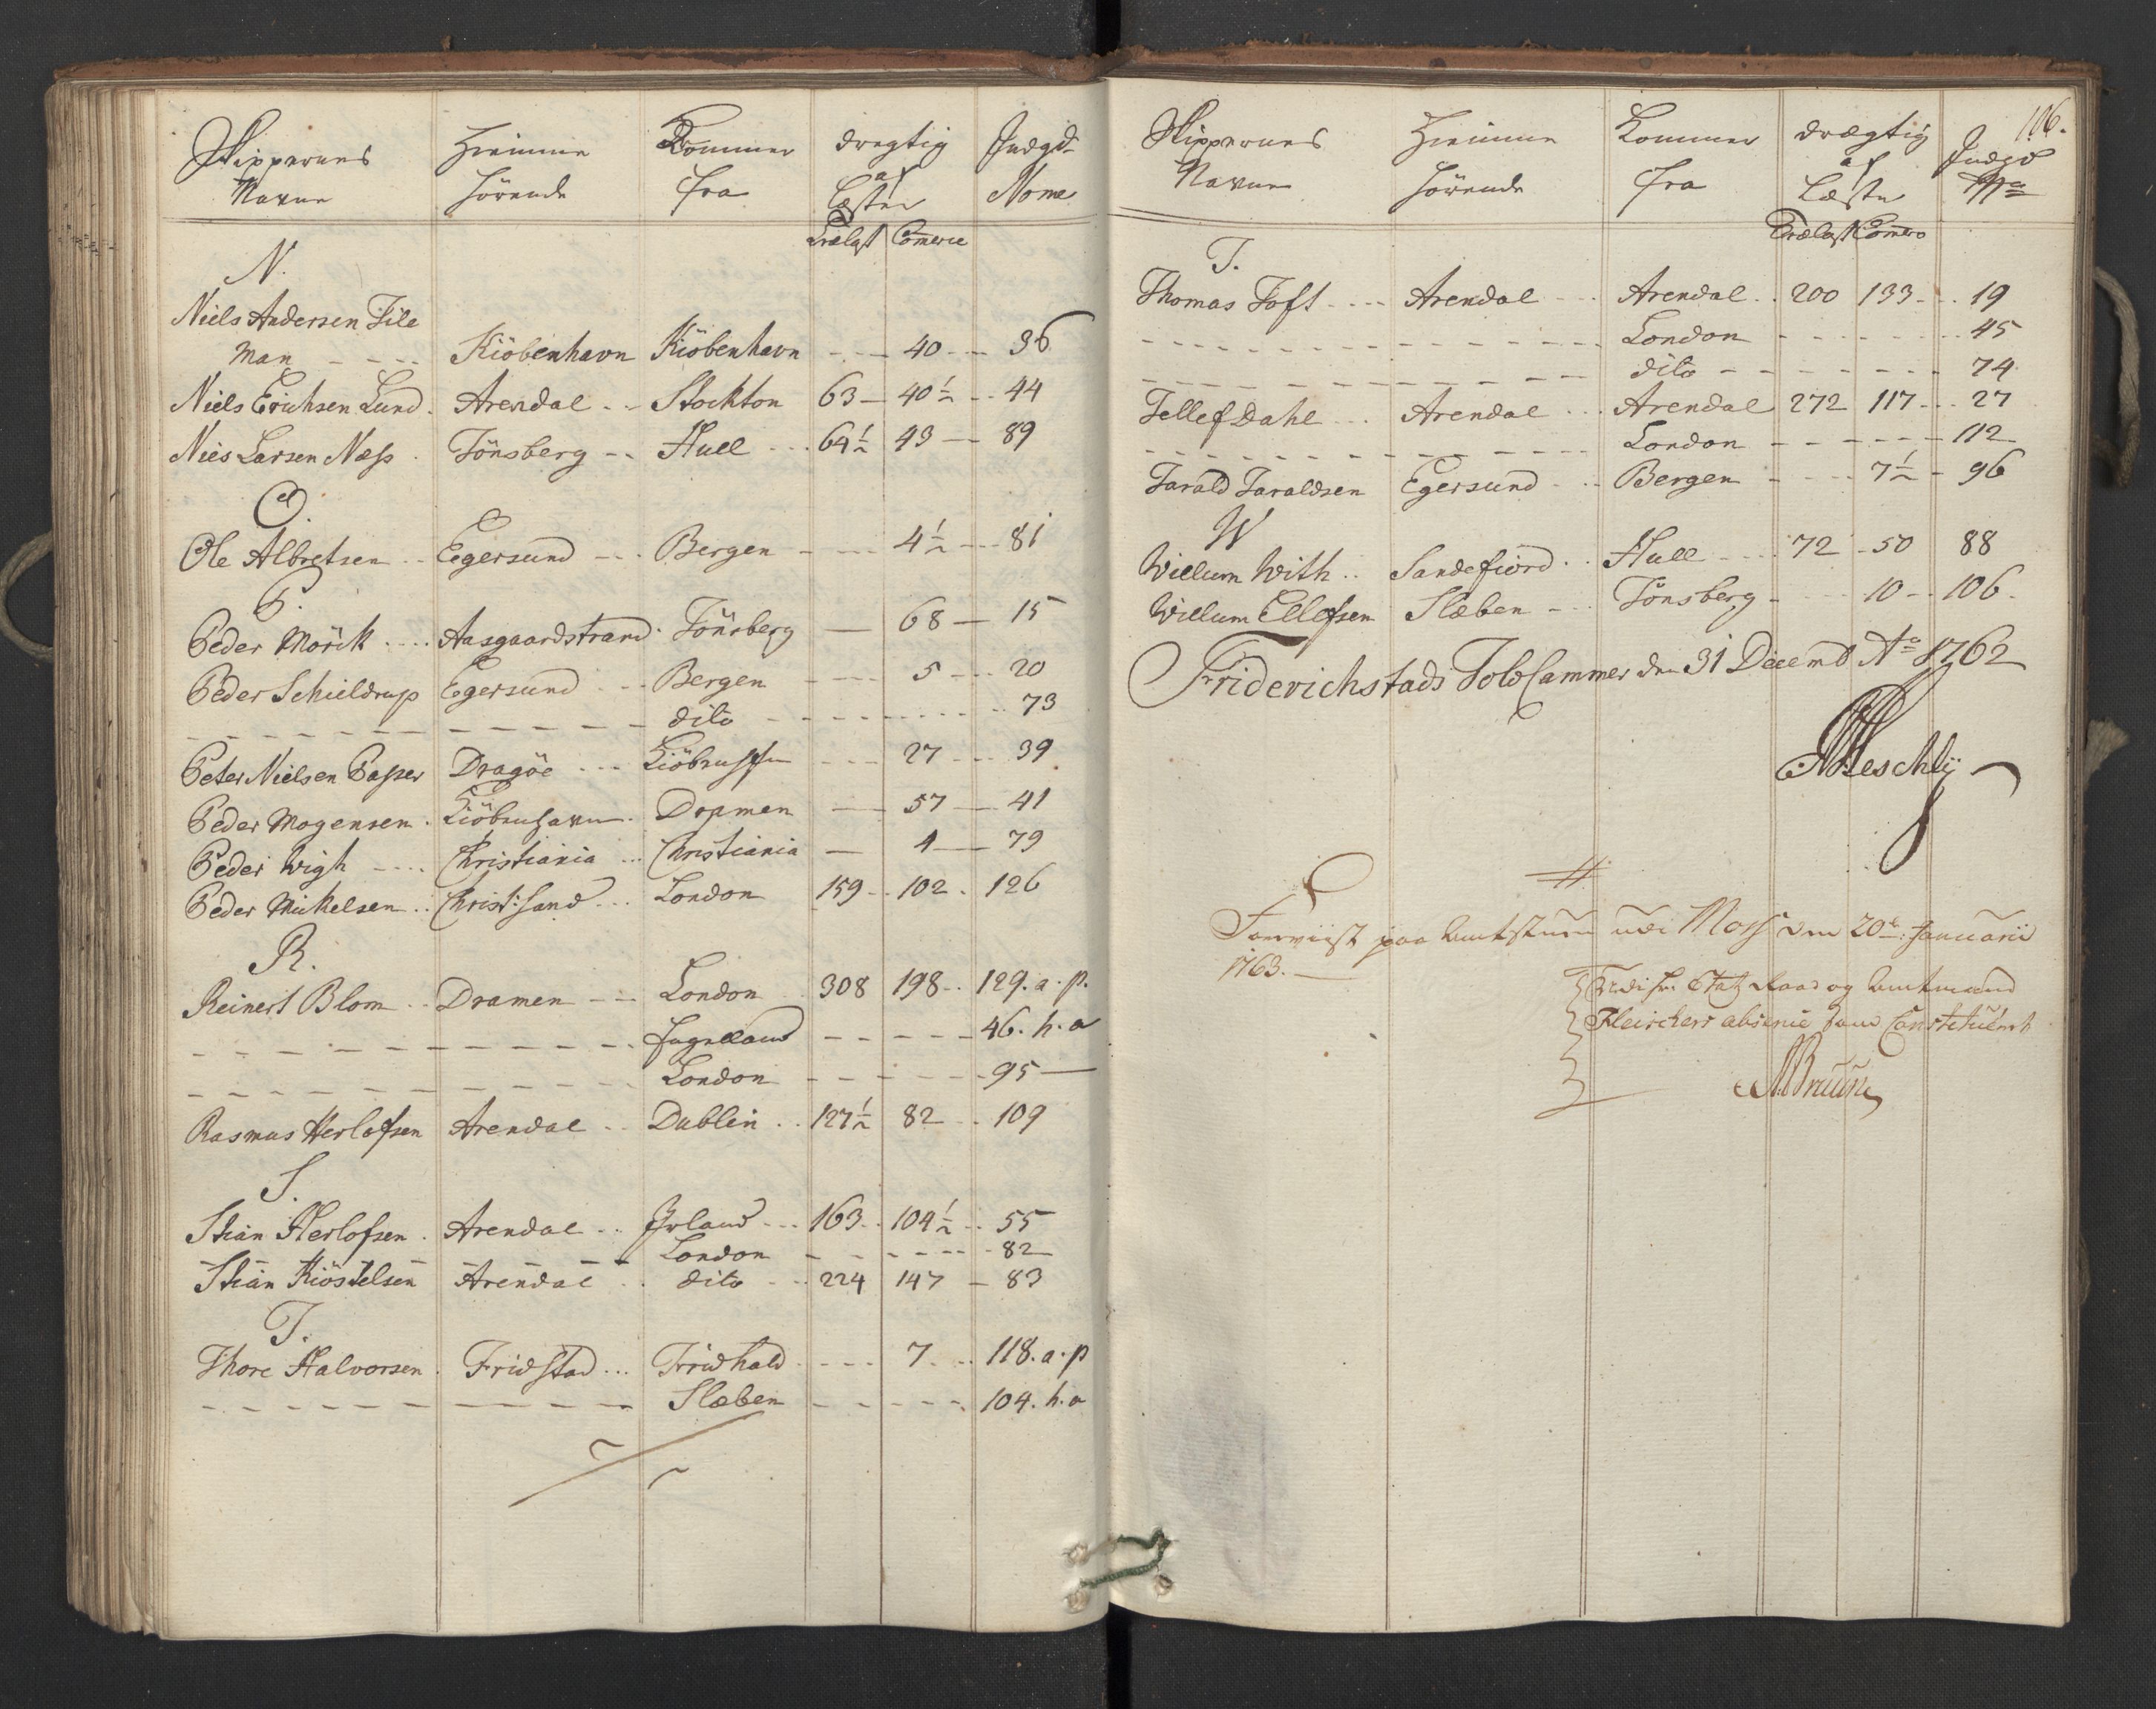 Skippernes Navne | Hiemme hörende | Kommer fra | drægtig af Læster | Indgd. Nome
Trælast | Comerce
N.
Niels Andersen File
man - - - - Kiöbenhavn Kiöbenhavn - - - 40 - - 36
Niels Erichsen Lund. Arendal - - Stockton 63 - 40½ - - 44
Niels Larsen Næss. Tönsberg - - Hull - - - 64½ 43 - - 89
O.
Ole Albretsen - - Egersund - - - Bergen - - - 4½ - - 81
P.
Peder Mörck - - - - Aasgaardstrand. Tönsberg — 68 — 15
Peder Schieldrup Egersund - - - Bergen - - - - 5 - - - 20
- - - - - - - - - - dito - - - - - - - - 73
Peter Nielsen Passer Dragöe - - - Kiöbenhafn - - - 27 - - - 39
Peder Mogensen. Kiöbenhavn. Dramen — 57 — 41
Peder Wigh - - - - Christiania - - - Christiania — 4 — 79
Peder Mickelsen - - Christ:sand - - - London 159 - - 102 - 126
R.
Reinert Blom - - Dramen - - - London 308 198 - - 129. a. p.
- - - - - - - - - - Engelland - - - - - 46. h. a
- - - - - - - - - - London - - - - - - 95 —
Rasmus Herlofsen Arendal - - Dublin - - 127½ 82 - - 109
S.
Stian Herlofsen. Arendal - - Irland - - - 163 - - 104½ - - 55
- - - - - - London - - - - - - - 82
Stian Kiöstelsen Arendal - - dito - - - 224 147 — 83
T.
Thore Halvorsen. Fridstad - - - Fridhald - - - - 7 - - 118. a. p
- - - - - - - - - - Slæben - - - - - 104. h. a
106.
Skippernes Navne | Hiemme hörende | Kommer fra | drægtig af Læster | Indgd No
Trælast | Comerc
T.
Thomas Toft - - - - Arendal - - - Arendal - - 200 133 - - - 19
- - - - - - - - - - London - - - - - - - 45
- - - - - - - - - - dito - - - - - - - 74
Tellef Dahl - - - Arendal - - - Arendal 272 117 - - - 27
- - - - - - - - - - London - - - - - - - 112
Tarald Taraldsen Egersund - - - Bergen - - - - 7½ - 96
W
Willum With - - Sandefiord - - Hull - - - - 72 - 50 88
Willum Ellefsen Slæben - - - Tönsberg - - - - 10 - - 106.
Friderichstads Told Cammer den 31 Decemb Ao 1762
Foreviist paa Amtstuen udi Moss den 20de Januarii
1763. —
Etatz Raad og Amtmand
Fleischers absence som Constitueret
Bruun